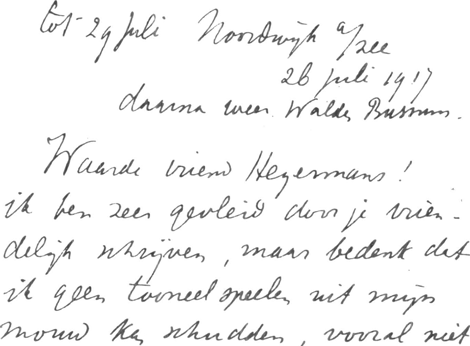 tot 29 Juli Noordwijk a/zee
26 juli 1917
daarna weer Walden Bussum.
Waarde vriend Heyermans!
ik ben zeer gevleid door je vrien-
delijk schrijven, maar bedenk dat
ik geen tooneelspeelen uit mijn
mouw kan schudden, vooral niet